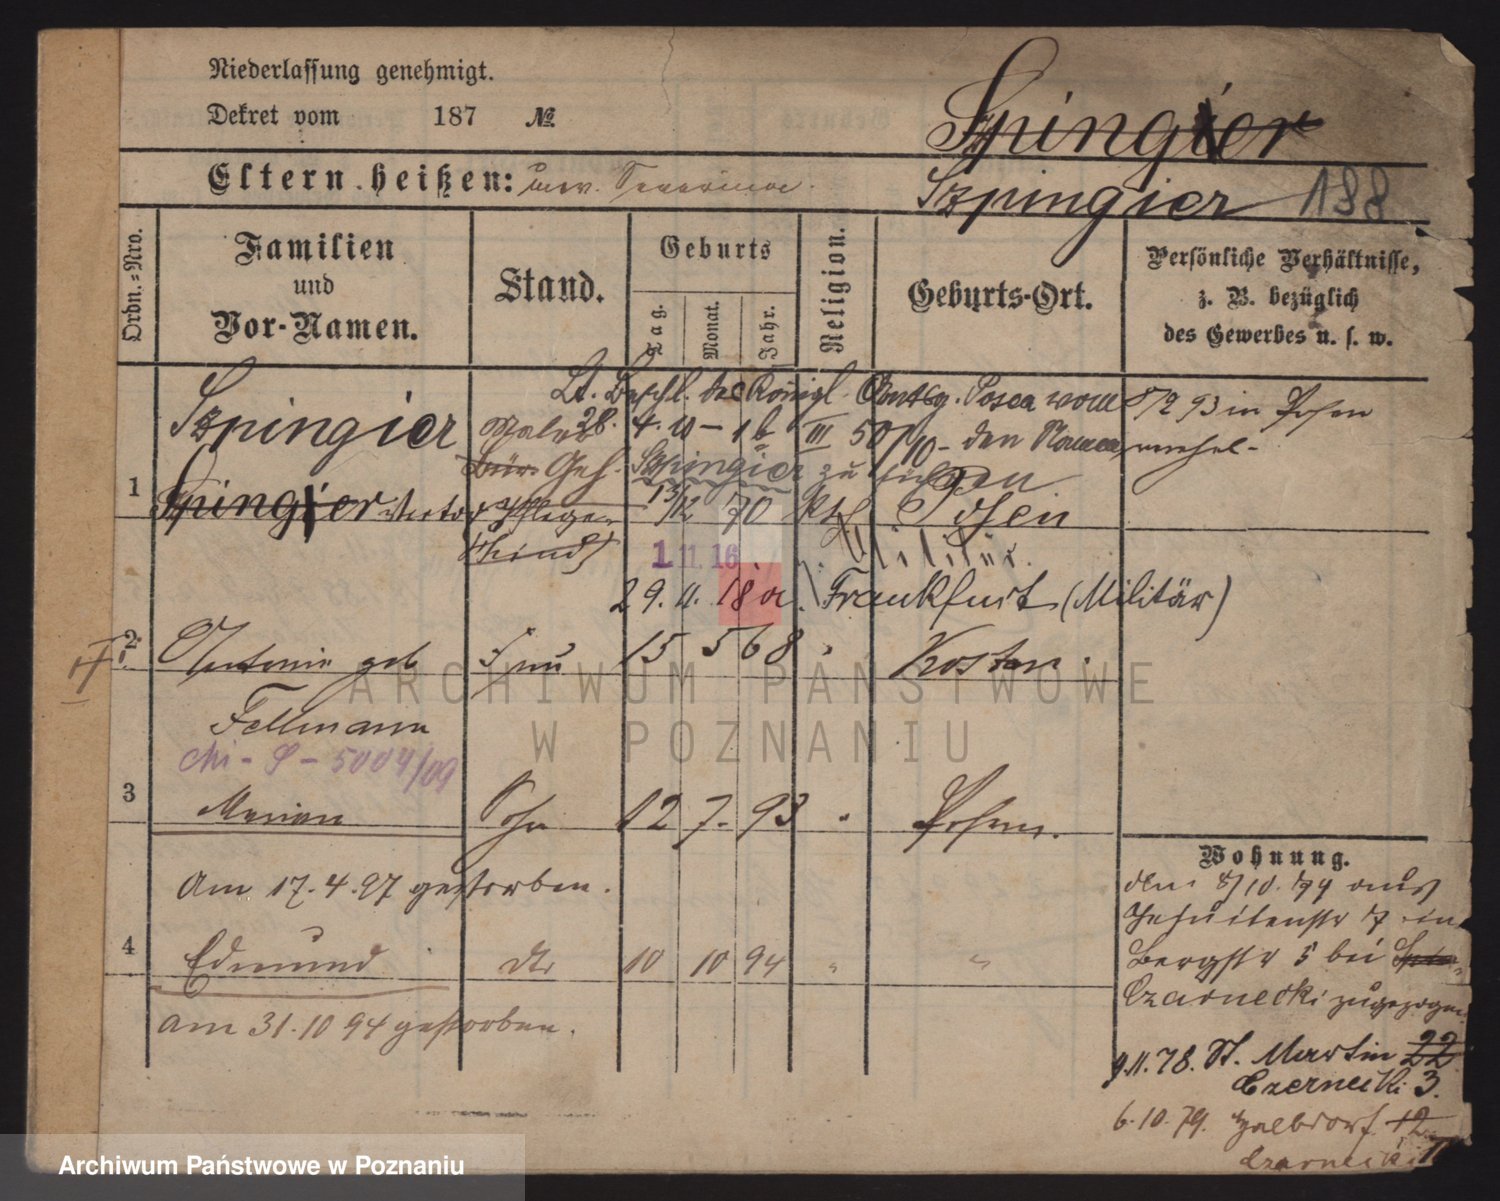 Niederlassung genehmigt.
Dekret vom 187 №
Spingier
Eltern heißen: unv. Severina.
Szpingier 188
Ordn.-Nro.
Familien
und
Vor-Namen.
Stand.
Geburts
Tag. Monat. Jahr.
Religion.
Geburts-Ort.
Persönliche Verhältnisse,
z. B. bezüglich
des Gewerbes u. s. w.
Lt. Beschl. des Königl. Amtsg. Posen vom
28. 4. 10 — 16 III 50/10 - den Namen
Szpingier zu führen
8/9 93 in Posen
Szpingier Maler
Geh.
1 Spingier Victor Pflege-
(Kind)
13/12 70 kth. Posen
1. 11. 16 Militär.
29. 11. 18 a. Frankfurt (Militär)
2 Antonie geb Frau 15 5 68 " Kosten.
Fellmann
Ai - P - 5004/09
3 Marian Sohn 12 7. 93 " Posen.
Am 17. 4. 97 gestorben.
4 Edmund dto 10 10 94 " "
am 31. 10 94 gestorben.
Wohnung.
den 8/10. 94 aus
Jesuitenstr 7 in
Bergstr 5 bei
Czarnecki zugezogen
9.11.78. St. Martin 22
Czernecki 3.
6.10.79. Halbdorf 12
Czarnecki
ARCHIWUM PAŃSTWOWE
W POZNANIU
Archiwum Państwowe w Poznaniu